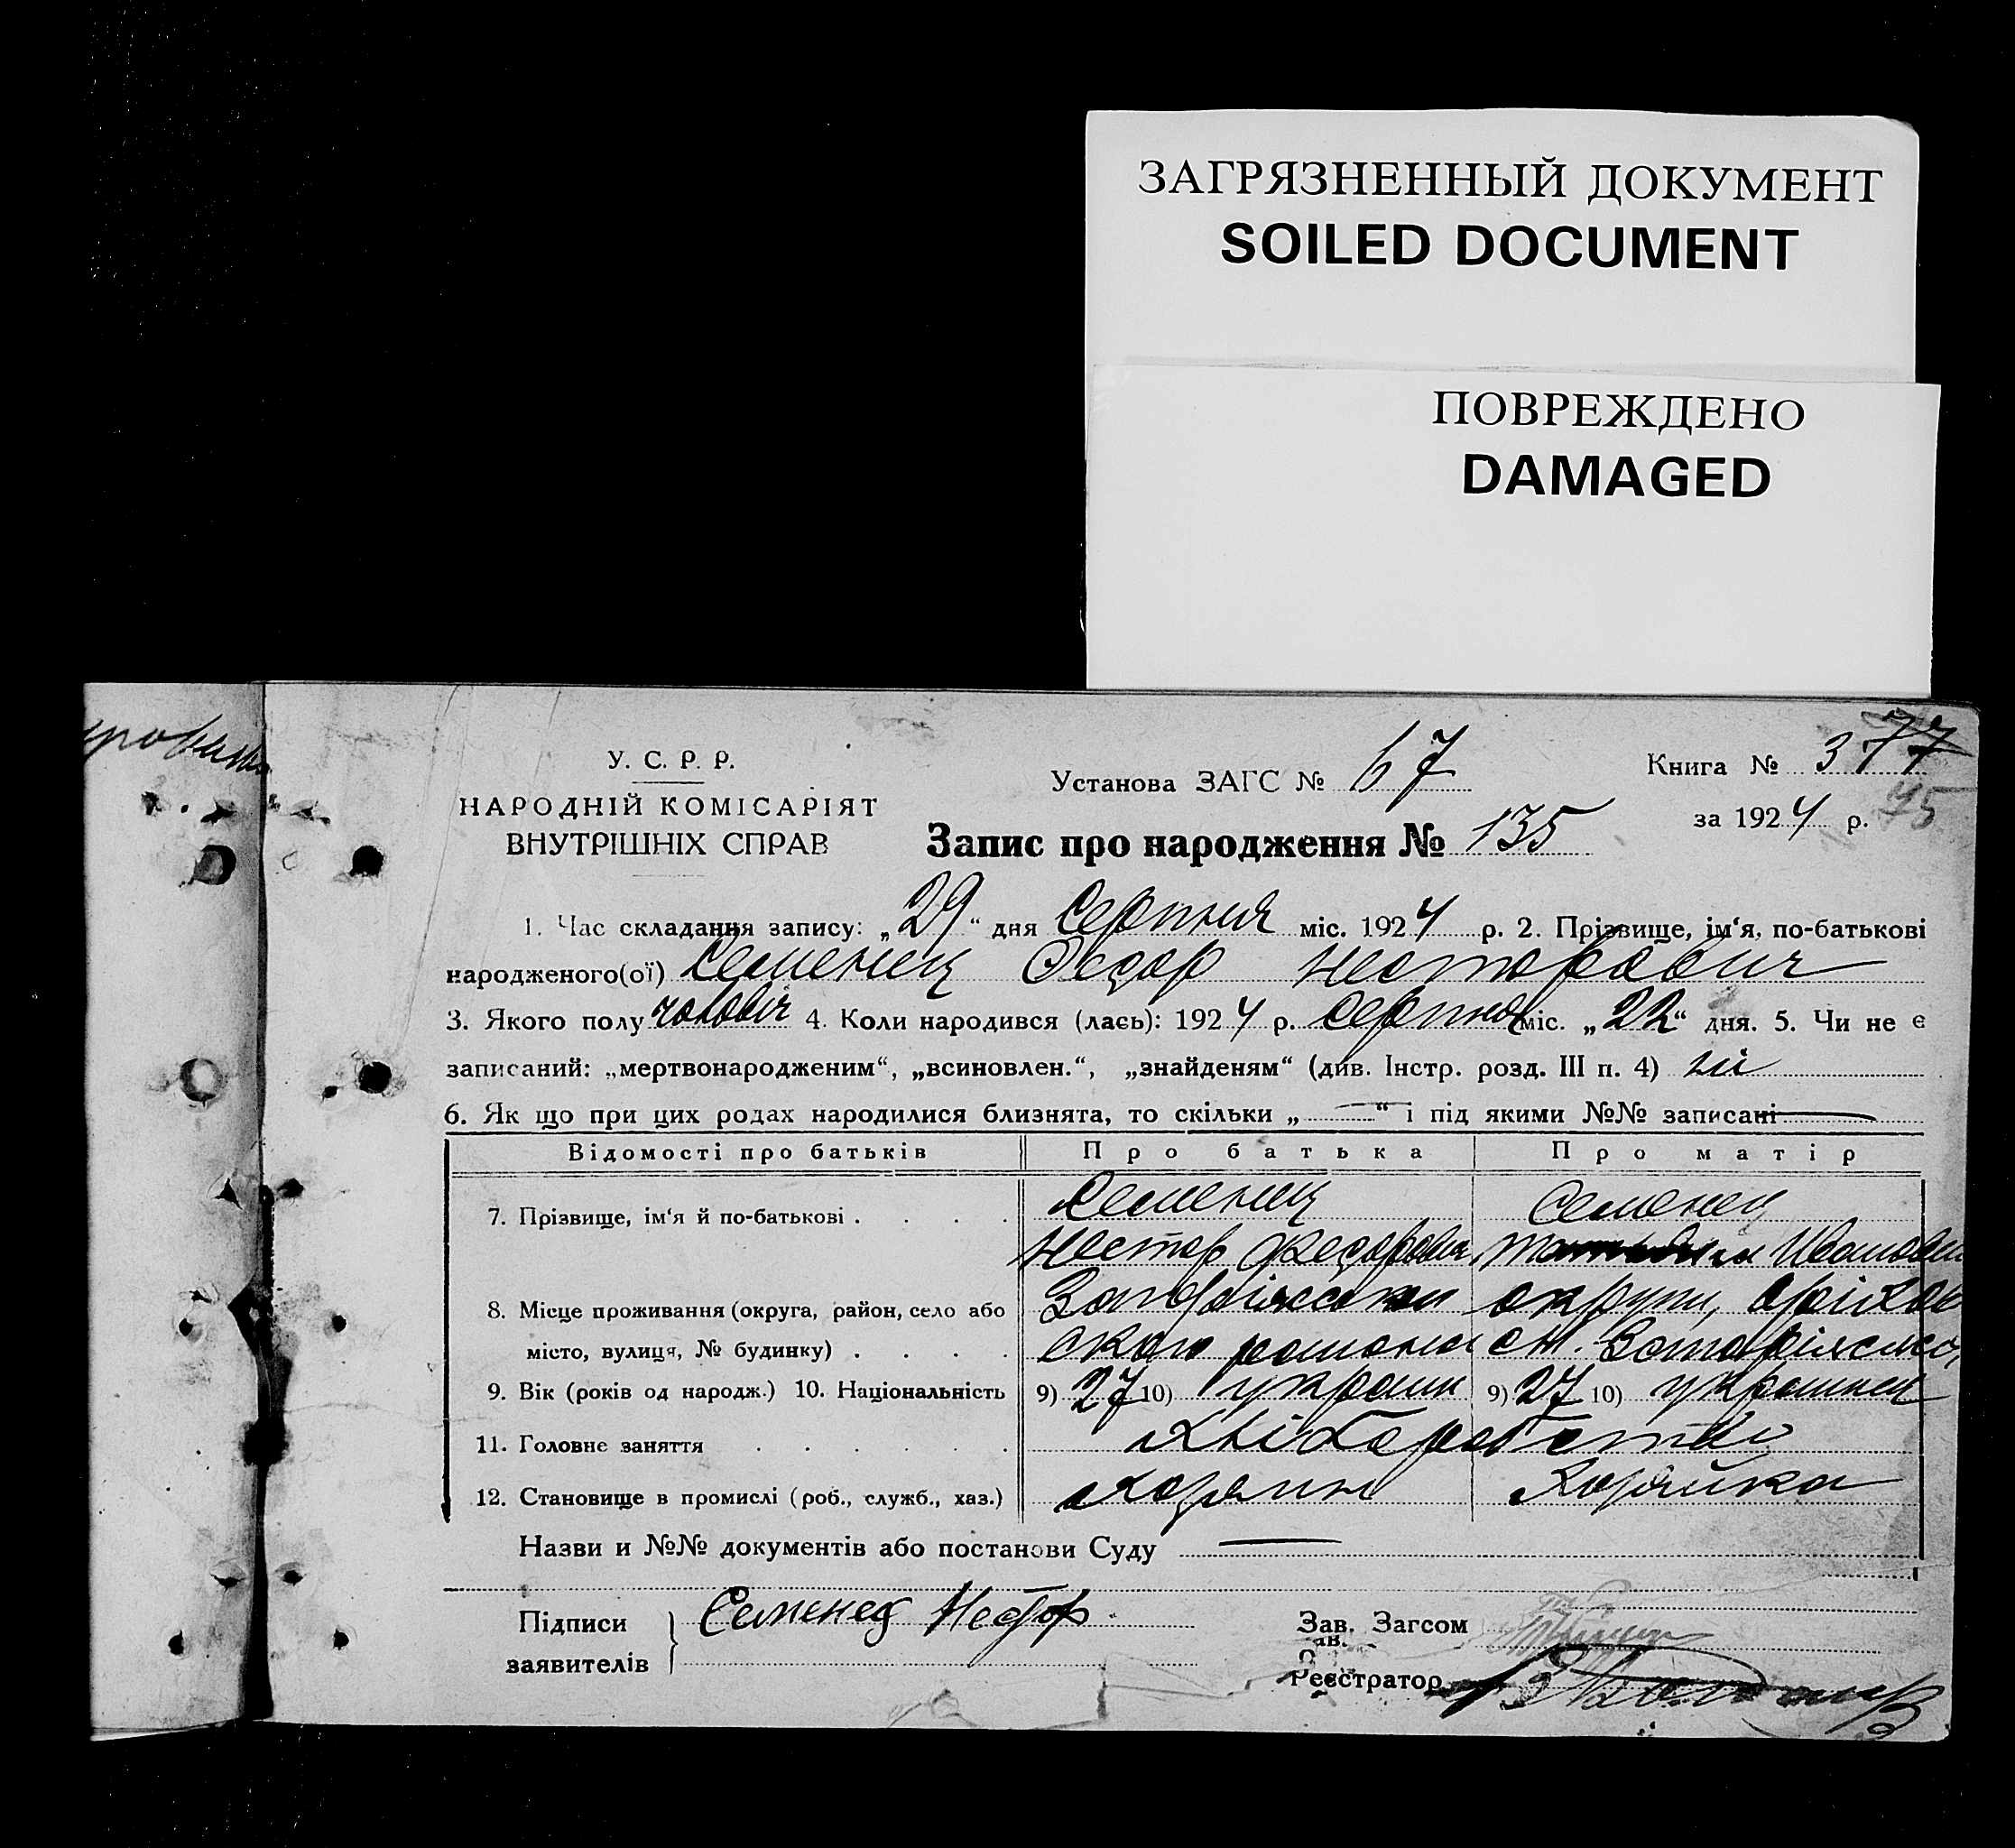 ЗАГРЯЗНЕННЫЙ ДОКУМЕНТ
SOILED DOCUMENT
ПОВРЕЖДЕНО
DAMAGED
У. С. Р. Р.
НАРОДНІЙ КОМІСАРІЯТ
ВНУТРІШНІХ СПРАВ
Установа ЗАГС № 67
Книга № 377
за 1924 р. 75
Запис про народження № 135
1. Час складання запису: „29“ дня Серпня міс. 1924 р. 2. Прізвище, ім‘я, по-батькові
народженого(ої) Семенец Федор Несторович
3. Якого полу чоловіч 4. Коли народився (лась): 1924 р. Серпня міс. „22“ дня. 5. Чи не є
записаний: „мертвонародженим“, „всиновлен.“, „знайденям“ (див. Інстр. розд. III п. 4) ні
6. Як що при цих родах народилися близнята, то скільки „ “ і під якими №№ записані
Відомості про батьків Про батька Про матір
7. Прізвище, ім‘я й по-батькові Семенец Семенец
Нестор Федорович Ивановн
8. Місце проживання (округа, район, село або округи,
місто, вулиця, № будинку)
9. Вік (років од народж.) 10. Національність 9) 27 10) украин 9) 27 10) украинец
11. Головне заняття хліборобство
12. Становище в промислі (роб., служб., хаз.) хозяин Хозяйка
Назви и №№ документів або постанови Суду
Підписи
заявителів
Семенец Нестор
Зав. Загсом
Реєстратор